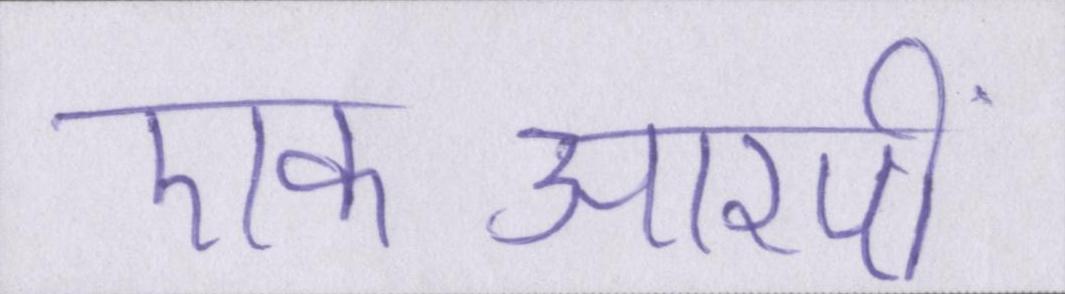 एक आरपीं